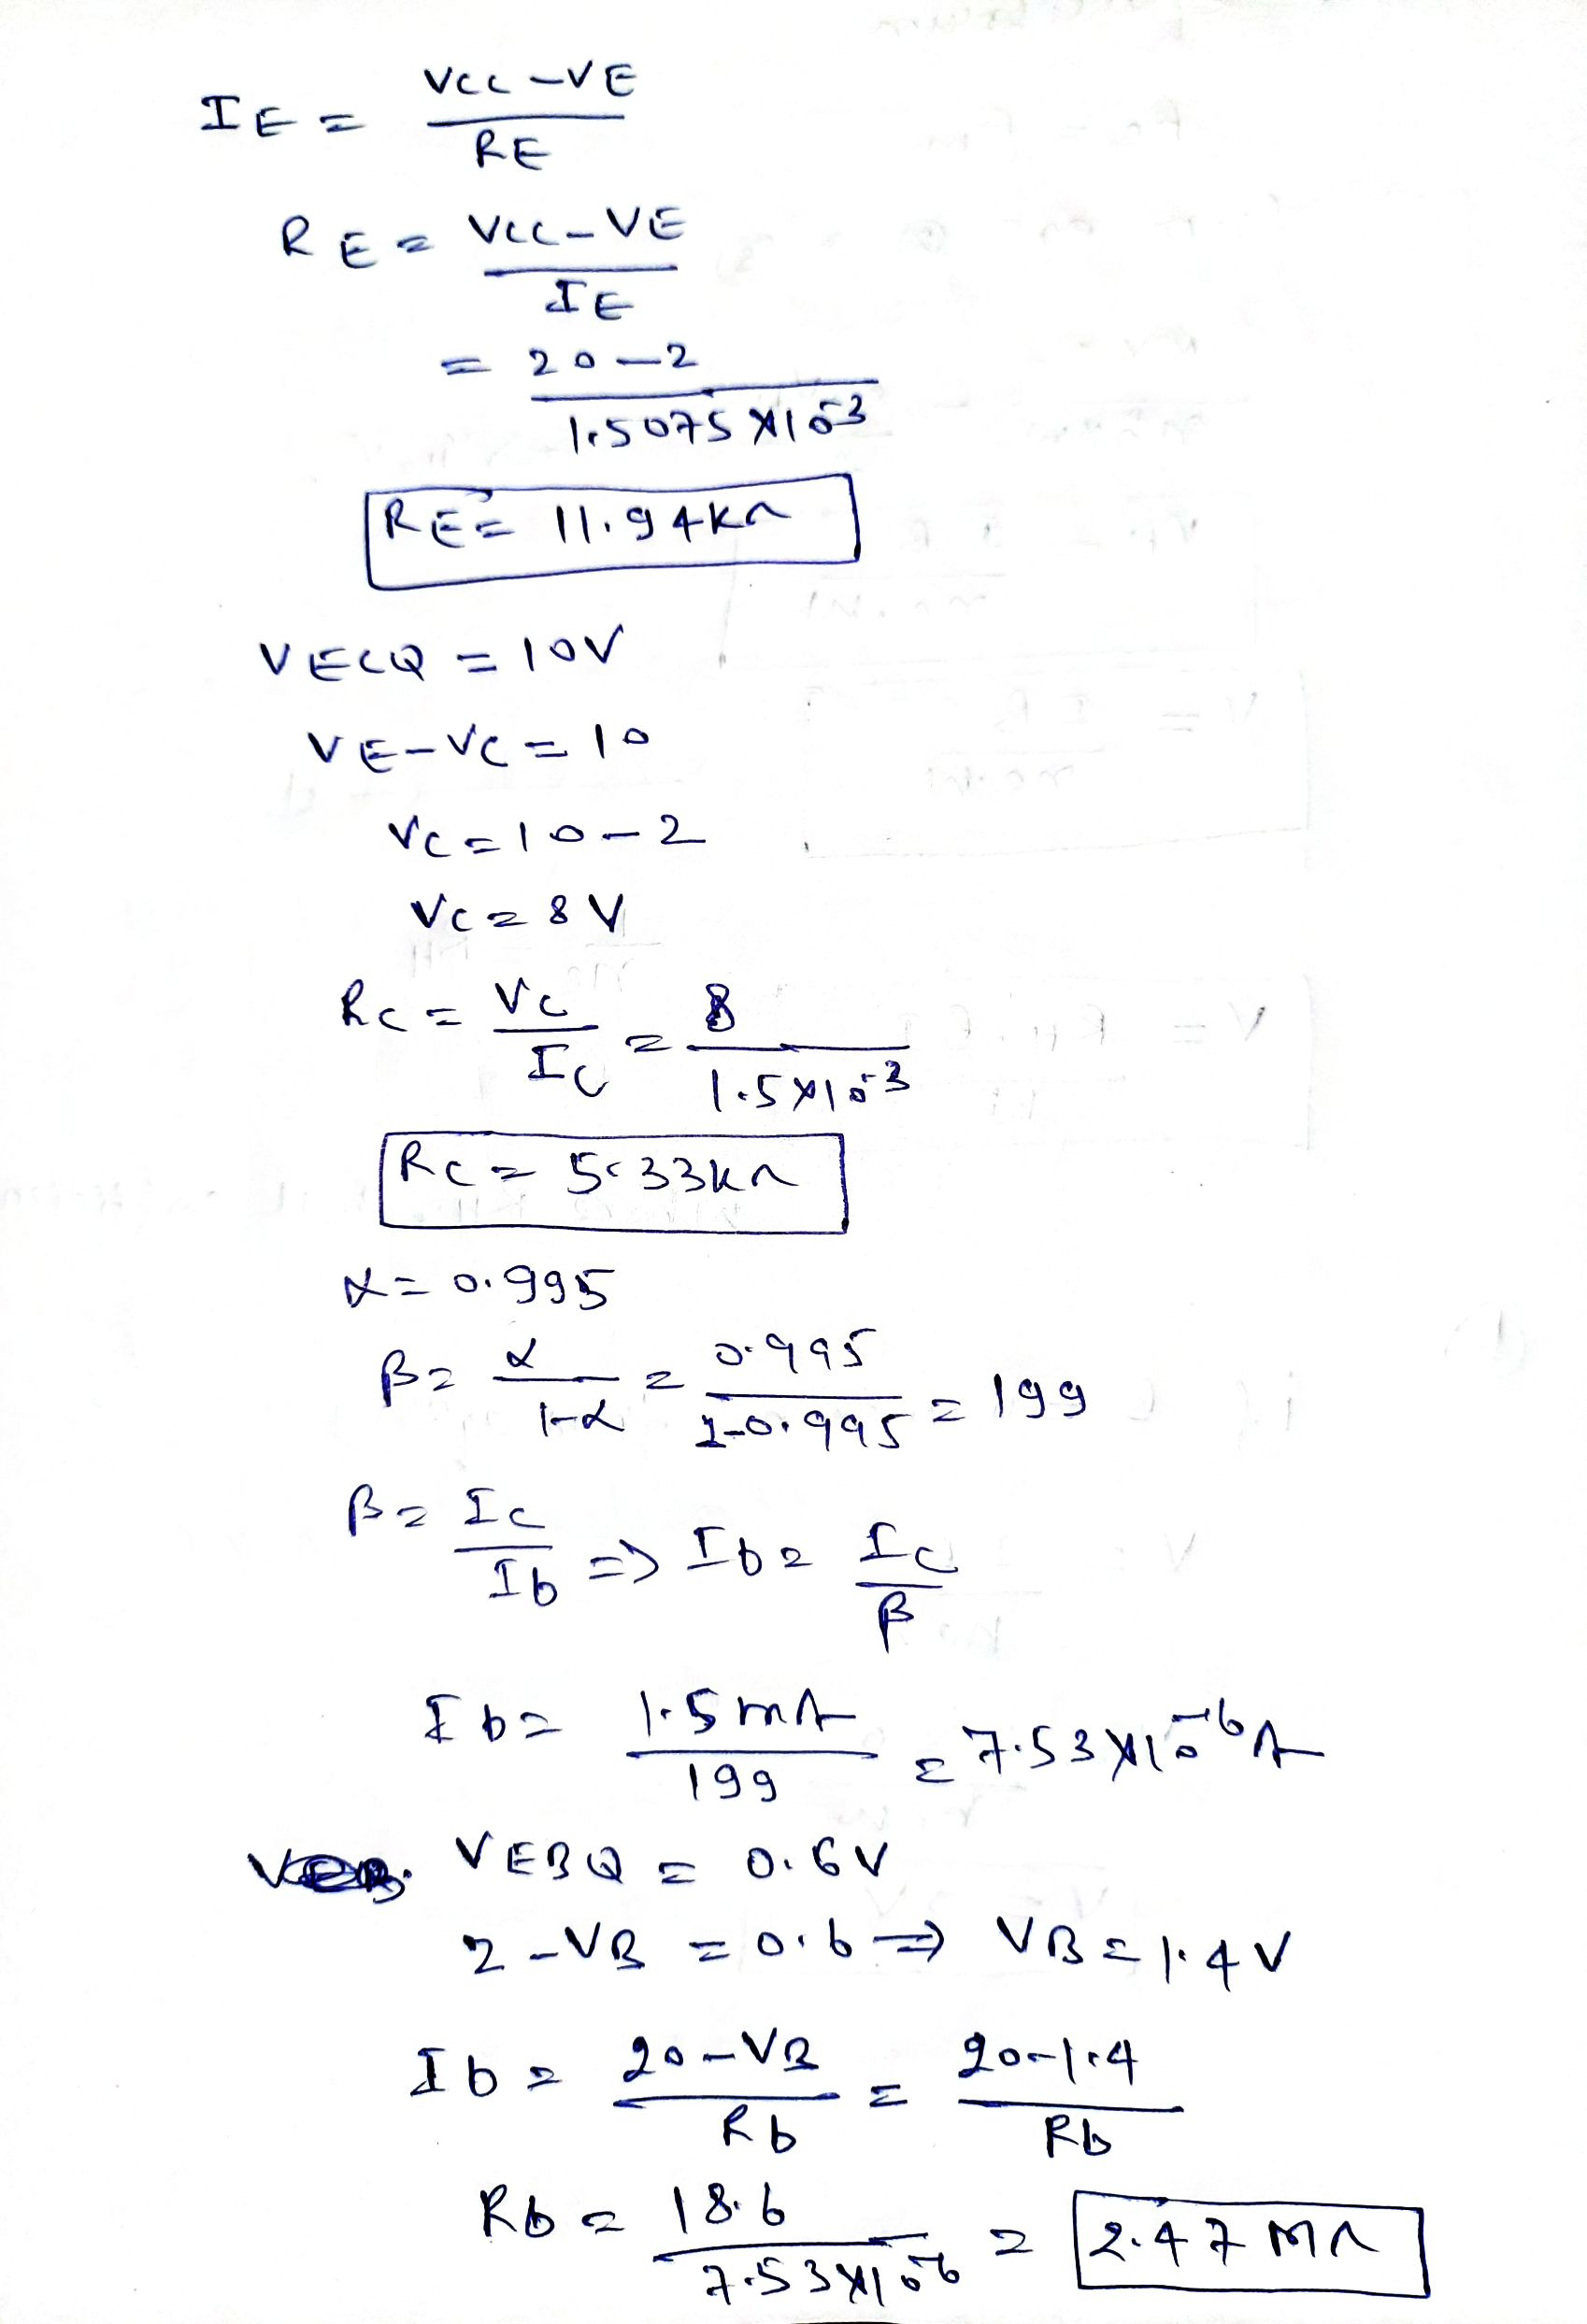 IE = VCC - VE / RE
RE = VCC - VE / IE
= 20 - 2 / 1.5075 × 10^-3
RE = 11.94 KΩ
VECQ = 10V
VE - VC = 10
VC = 10 - 2
VC = 8 V
RC = VC / IC = 8 / 1.5 × 10^-3
RC = 5.33 KΩ
α = 0.995
β = α / 1-α = 0.995 / 1-0.995 = 199
β = Ic / Ib => Ib = Ic / β
Ib = 1.5 mA / 199 = 7.53 × 10^-6 A
VEBQ = 0.6V
2 - VB = 0.6 => VB = 1.4 V
Ib = 20 - VB / Rb = 20 - 1.4 / Rb
Rb = 18.6 / 7.53 × 10^-6 = 2.47 MΩ